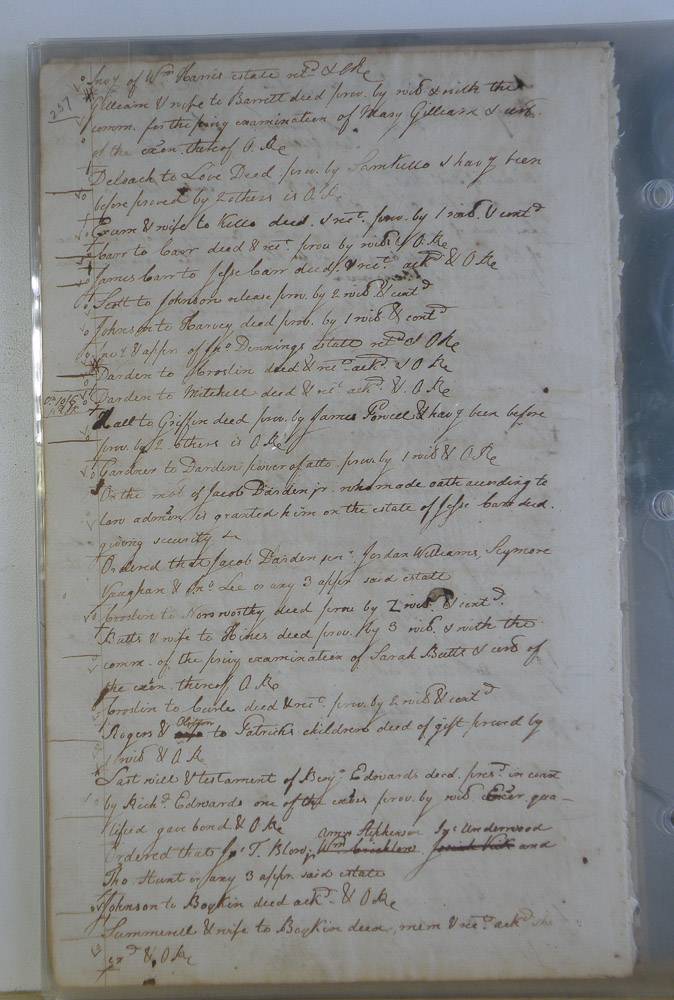 257
Invy of Wm Harris estate retd & O Re
Gilliam & wife to Barrett deed prov. by witss & with the
comm. for the privy examination of Mary Gilliam & certe
of the exon. thereof O. Re
Deloach to Love Deed prov. by Saml Kello & havg been
before proved by 2 others is O Re
Exum & wife to Kello deed & rect. prov. by 1 witss & contd
Carr to Carr deed & rect. prov by witss & O. Re
James Carr to Jesse Carr deed & rect. ackd & O Re
Scott to Johnson release prov. by 2 witss & contd
Johnson to Harvey deed prov. by 1 witss & contd
Invy & appr of Jno Dennings estate retd & O Re
Darden to Croslin deed & rect. ackd. & O Re
Darden to Mitchell deed & rect ackd. & O Re
Hall to Griffin deed prov. by James Powell & havg been before
prov. by 2 others is O Re
Gardner to Darden power of atto. prov. by 1 witss & O Re
On the mot. of Jacob Darden jr. who made oath according to
law admon. is granted him on the estate of Jesse Carr decd.
giving security &c
Ordered that Jacob Darden senr. Jordan Williams, Seymore
Vaughan & Jno Lee or any 3 appr said estate
Croslin to Norsworthy deed prov by 2 witss. & contd.
Butts & wife to Hines deed prov. by 3 wits. & with the
comm. of the privy examination of Sarah Butts & certe of
the exon. thereof O Re
Croslin to Curle deed & rect. prov. by 2 witss & contd
Rogers & to Patricks children deed of gift proved by
1 witss & O Re
Last will & testament of Benj. Edwards decd. presd. in court
by Richd. Edwards one of the exors prov. by witss Exor qua-
lified gave bond & O Re
Amos Stephenson Jye Underwood
Ordered that Jno T. Blow, Wm Cricklow Josiah Vick and
Tho. Hunt or any 3 appr. said estate
Johnson to Boykin deed ackd. & O Re
Summerell & wife to Boykin deed, mem & rect. ackd
exd & O Re